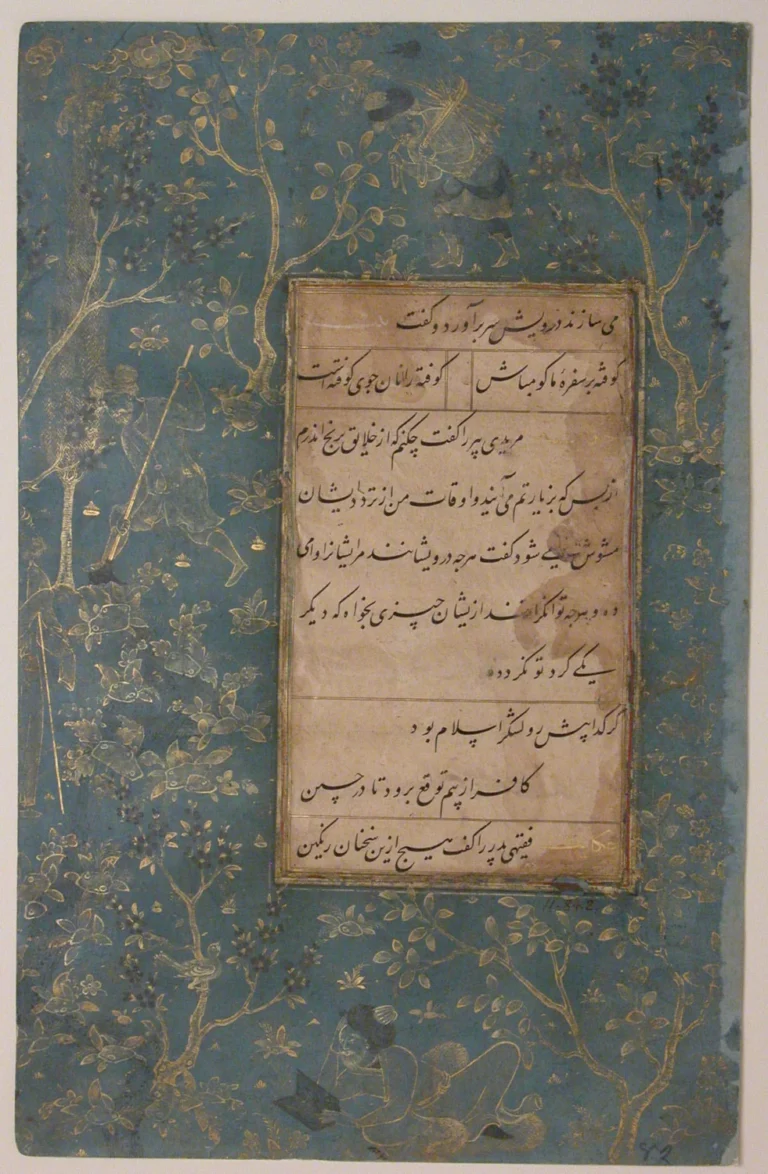 می سازند درویش سر برآورد و گفت
کوفته بر سفرهٔ ما گو مباش کوفته را نان جوی کوفته است
مریدی پیر را گفت چکنم که از خلایق برنج اندرم
از بس که بزیارتم می آیند و اوقات من از تردد ایشان
مشوش می شود گفت هرچه درویشانند مر ایشانرا وامی
ده و هرچه توانکرانند ازیشان چیزی بخواه که دیکر
یکی کرد تو نکردد
کر کدا پیش رو لشکر اسلام بود
کافر از بیم توقع برود تا در چین
حکایت فقیهی پدر را کفت هیچ ازین سخنان رنکین
82